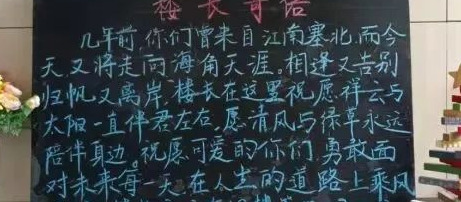 楼长寄语
几年前，你们曾来自江南塞北，而今
天又将走向海角天涯。相逢又告别
归帆又离岸，楼长在这里祝愿祥云与
太阳一直伴君左右，愿清风与绿草永远
陪伴身边。祝愿可爱的你们，勇敢面
对未来每一天，在人生的道路上乘风